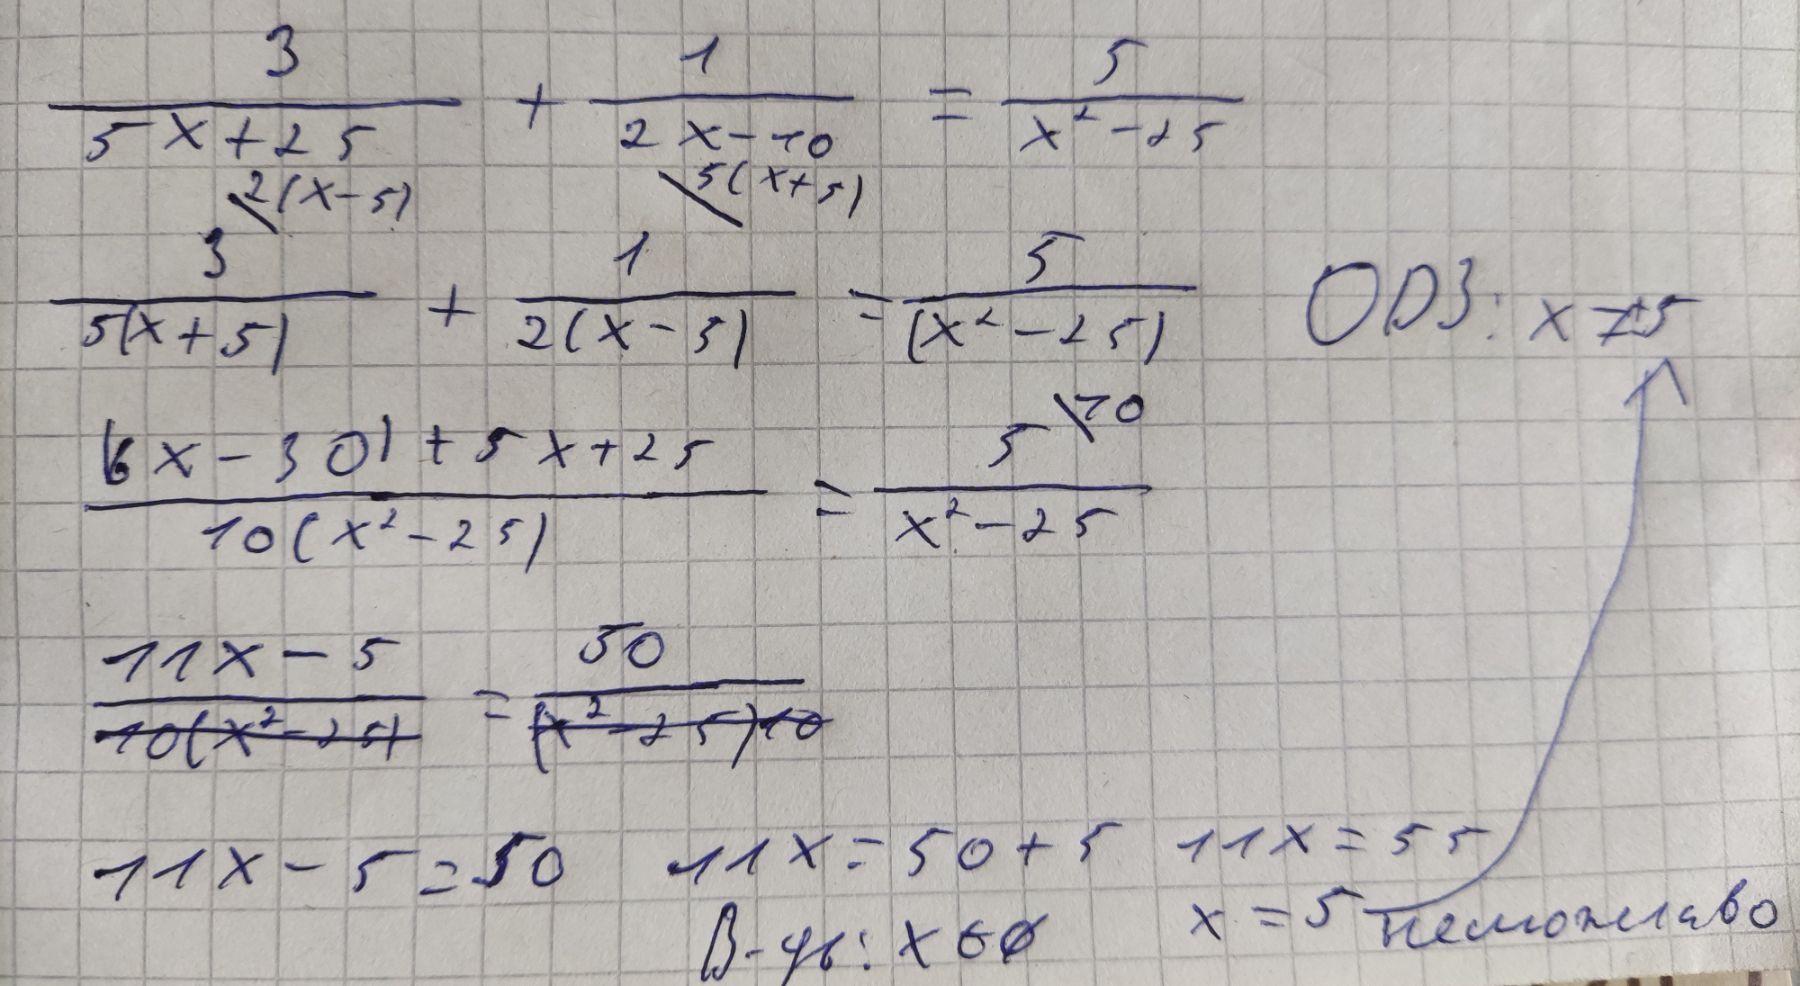 3/(5x+25) + 1/(2x-10) = 5/(x²-25)
2(x-5) 5(x+5)
3/(5(x+5)) + 1/(2(x-5)) = 5/(x²-25) ОДЗ: x≠±5
((6x-30)+5x+25)/(10(x²-25)) = 5/(x²-25) 10
(11x-5)/(10(x²-25)) = 50/((x²-25)10)
11x-5=50 11x=50+5 11x=55
В-дь: x∈ø x=5 неможливо